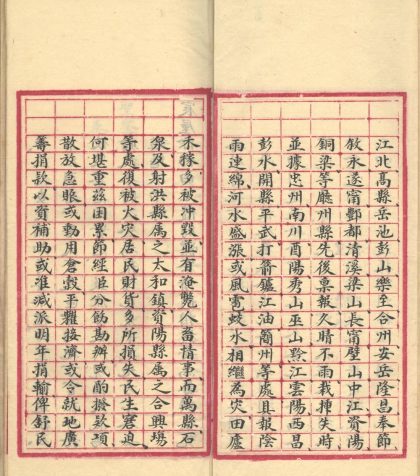 江北高縣岳池彭山樂至合州安岳隆昌奉節
敘永遂甯酆都清溪梁山長甯璧山中江資陽
銅梁等廳州縣先後稟報久晴不雨栽插失時
並據忠州南川酉陽秀山巫山黔江雲陽西昌
彭水開縣平武打箭鑪江油蘭州等處具報陰
雨連綿河水盛漲或風雹蛟水相繼為災田廬
禾稼多被沖毀並有淹斃人畜情事而萬縣石
泉及射洪縣属之太和鎮資陽縣属之合興場
等處復被火災居民財貨多所損失民生窘迫
何堪重茲困累節經臣分飭勘辦或酌撥欵項
散放急賑或動用倉穀平糶接濟或令就地廣
籌捐款以資補助或准減派明年捐輸俾舒民